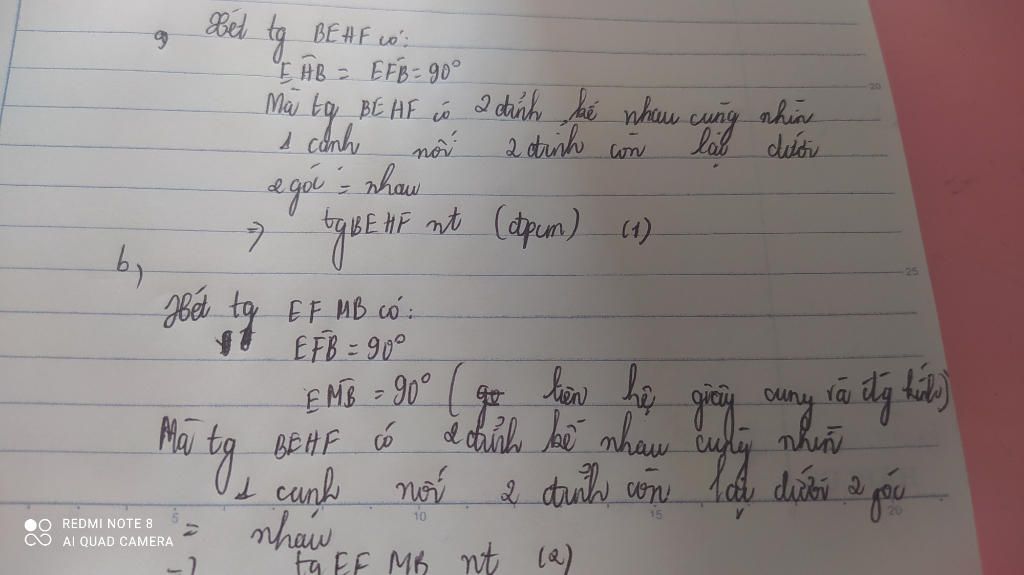 a, Xét tg BEHF có:
EHB = EFB = 90°
Mà tg BEHF có 2 đỉnh kề nhau cùng nhìn
1 cạnh nối 2 đỉnh còn lại dưới
2 góc = nhau
=> tg BEHF nt (đpcm) (1)
b,
Xét tg EFMB có:
EFB = 90°
EMB = 90° ( liên hệ giữa cung và đg kính)
Mà tg BEHF có 2 đỉnh kề nhau cùng nhìn
1 cạnh nối 2 đỉnh còn lại dưới 2 góc
= nhau
=> tg EFMB nt (2)
20
25
5 10 15 20
REDMI NOTE 8
AI QUAD CAMERA